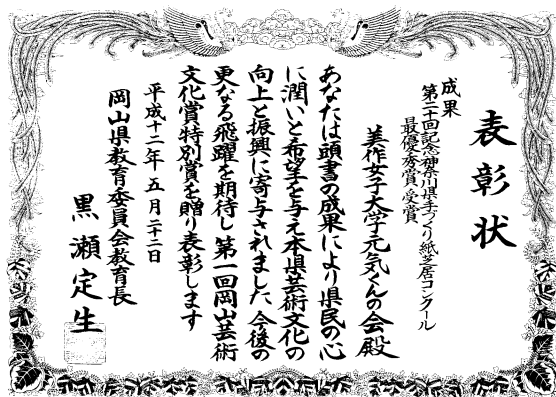 表彰状
成果
第二十回記念神奈川県手づくり紙芝居コンクール
最優秀賞受賞
美作女子大学元気くんの会殿
あなたは頭書の成果により県民の心
に潤いと希望を与え本県芸術文化の
向上と振興に寄与されました 今後の
更なる飛躍を期待し第一回岡山芸術
文化賞特別賞を贈り表彰します
平成十二年五月二十二日
岡山県教育委員会教育長
黒瀬定生